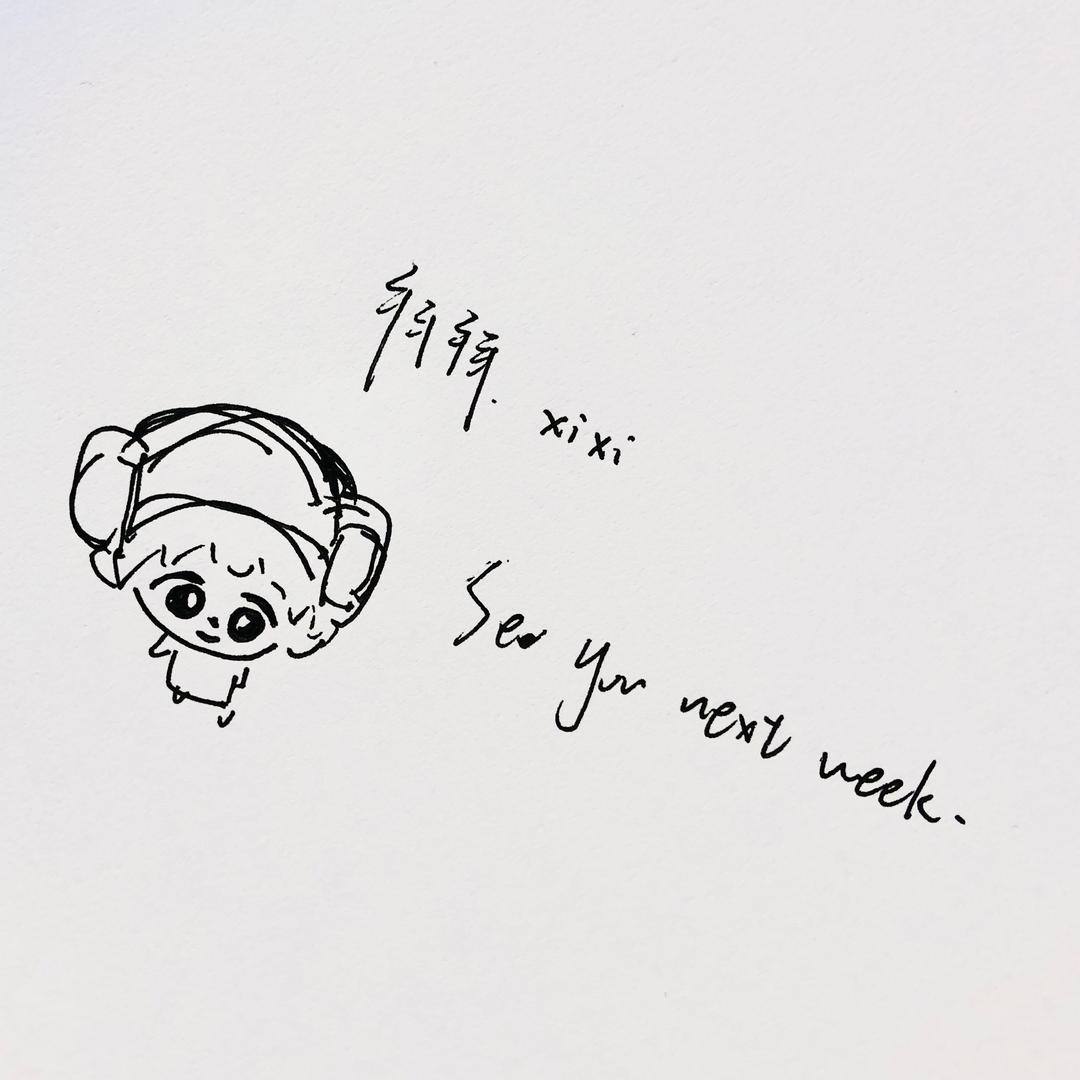 拜拜. xixi
See you next week.